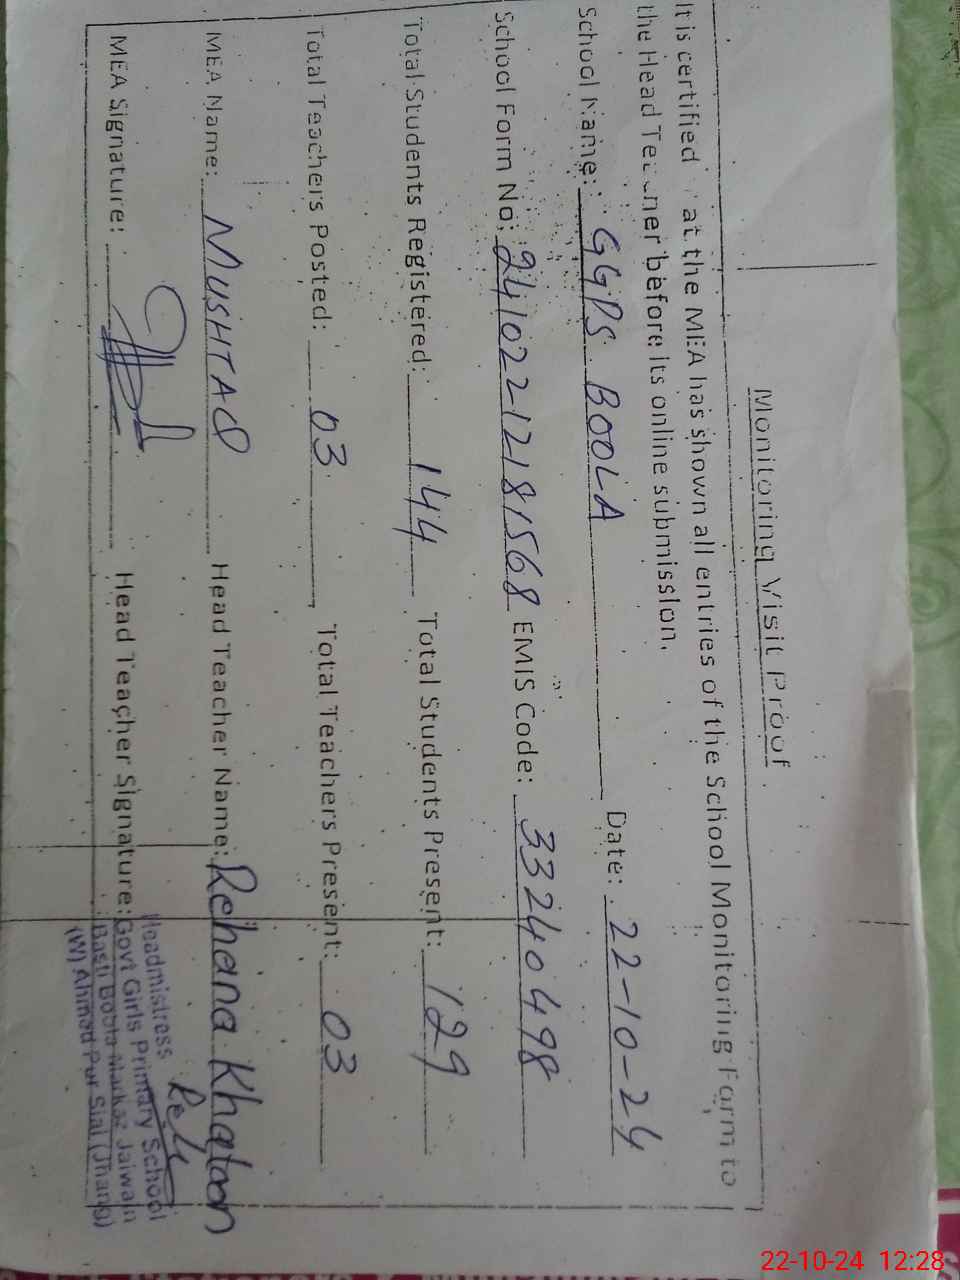 Monitoring Visit Proof
It is certified at the MEA has shown all entries of the School Monitoring Form to
the Head Teacher before its online submission.
School Name: GGPS BOOLA Date: 22-10-24
School Form No: 24102212181568 EMIS Code: 33240498
Total Students Registered: 144 Total Students Present: 129
Total Teachers Posted: 03 Total Teachers Present: 03
MEA Name: MUSHTAQ Head Teacher Name: Rehana Khatoon
MEA Signature: Head Teacher Signature:
Headmistress
Govt Girls Primary School
Basti Boota Markaz Jaiwain
(W) Ahmad Pur Sial (Jhang)
22-10-24 12:28